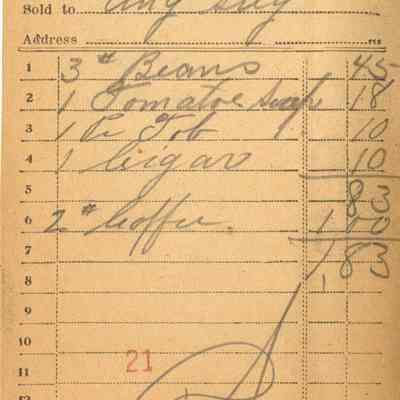 Sold to
Address
1 3 # Beans 45
2 1 Tomatoe Soup 18
3 1 Tob 10
4 1 Cigar 10
5 83
6 2 # Coffee 1 00
7 1 83
8
9
10
11 21
12